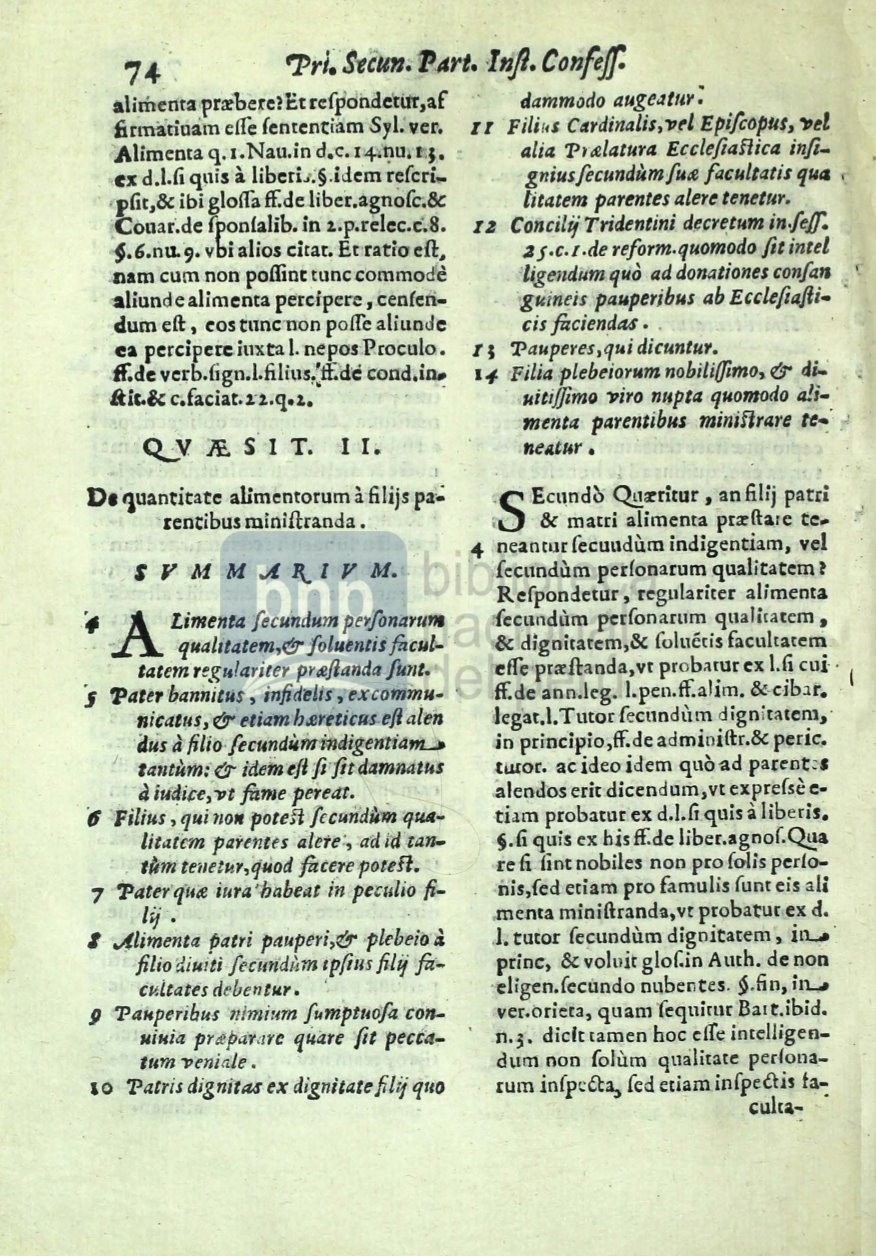 74 Pri. Secun. Part. Inſt. Confeſſ.
alimenta præbere? Et reſpondetur, af
firmatiuam eſſe ſententiam Syl. ver.
Alimenta q. 1. Nau. in d.c. 14. nu. 13.
ex d.l. ſi quis à liberis. §. idem reſcri-
pſit, & ibi gloſſa ff. de liber. agnoſc. &
Couar. de ſponſalib. in 2. p. relec. c. 8.
§. 6. nu. 9. vbi alios citat. Et ratio eſt,
nam cum non poſſint tunc commodè
aliunde alimenta percipere, cenſen-
dum eſt, eos tunc non poſſe aliunde
ea percipere iuxta l. nepos Proculo.
ff. de verb. ſign. l. filius. ff. de cond. in-
ſtit. & c. faciat. 22. q. 2.
QVÆSIT. II.
De quantitate alimentorum à filijs pa-
rentibus miniſtranda.
SVMMARIVM.
4 ALimenta ſecundum perſonarum
qualitatem, & ſoluentis facul-
tatem regulariter præſtanda ſunt.
5 Pater bannitus, infidelis, excommu-
nicatus, & etiam hæreticus eſt alen
dus à filio ſecundùm indigentiam
tantùm: & idem eſt ſi ſit damnatus
à iudice, vt fame pereat.
6 Filius, qui non poteſt ſecundùm qua-
litatem parentes alere, ad id tan-
tùm tenetur, quod facere poteſt.
7 Pater quæ iura habeat in peculio fi-
lij.
8 Alimenta patri pauperi, & plebeio à
filio diuiti ſecundùm ipſius filij fa-
cultates debentur.
9 Pauperibus nimium ſumptuoſa con-
uiuia præparare quare ſit pecca-
tum veniale.
10 Patris dignitas ex dignitate filij quo
dammodo augeatur.
11 Filius Cardinalis, vel Epiſcopus, vel
alia Prælatura Eccleſiaſtica inſi-
gnius ſecundùm ſuæ facultatis qua
litatem parentes alere tenetur.
12 Concilij Tridentini decretum in. ſeſſ.
25. c. 1. de reform. quomodo ſit intel
ligendum quò ad donationes conſan
guineis pauperibus ab Eccleſiaſti-
cis faciendas.
13 Pauperes, qui dicuntur.
14 Filia plebeiorum nobiliſſimo, & di-
uitiſſimo viro nupta quomodo ali-
menta parentibus miniſtrare te-
neatur.
SEcundò Quæritur, an filij patri
& matri alimenta præſtare te-
4 neantur ſecuudùm indigentiam, vel
ſecundùm perſonarum qualitatem?
Reſpondetur, regulariter alimenta
ſecundùm perſonarum qualitatem,
& dignitatem, & soluẽtis facultatem
eſſe præſtanda, vt probatur ex l. ſi cui
ff. de ann. leg. l. pen. ff. alim. & cibar.
legat. l. Tutor ſecundùm dignitatem,
in principio, ff. de adminiſtr. & peric.
tutor. ac ideo idem quò ad parentes
alendos erit dicendum, vt expreſsè e-
tiam probatur ex d.l. ſi quis à liberis.
§. ſi quis ex his ff. de liber. agnoſ. Qua
re ſi ſint nobiles non pro ſolis perſo-
nis, ſed etiam pro famulis ſunt eis ali
menta miniſtranda, vt probatur ex d.
l. tutor ſecundùm dignitatem, in
princ, & voluit gloſ. in Auth. de non
eligen. ſecundo nubentes. §. fin, in
ver. orieta, quam ſequitur Bart. ibid.
n. 3. dicit tamen hoc eſſe intelligen-
dum non ſolùm qualitate perſona-
rum inſpecta, ſed etiam inſpectis fa-
culta-